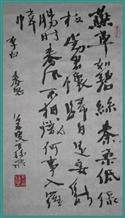 燕草如碧絲秦桑低綠
枝當君懷歸日是妾斷
腸時春風不相識何事入羅
幃
李白 春思